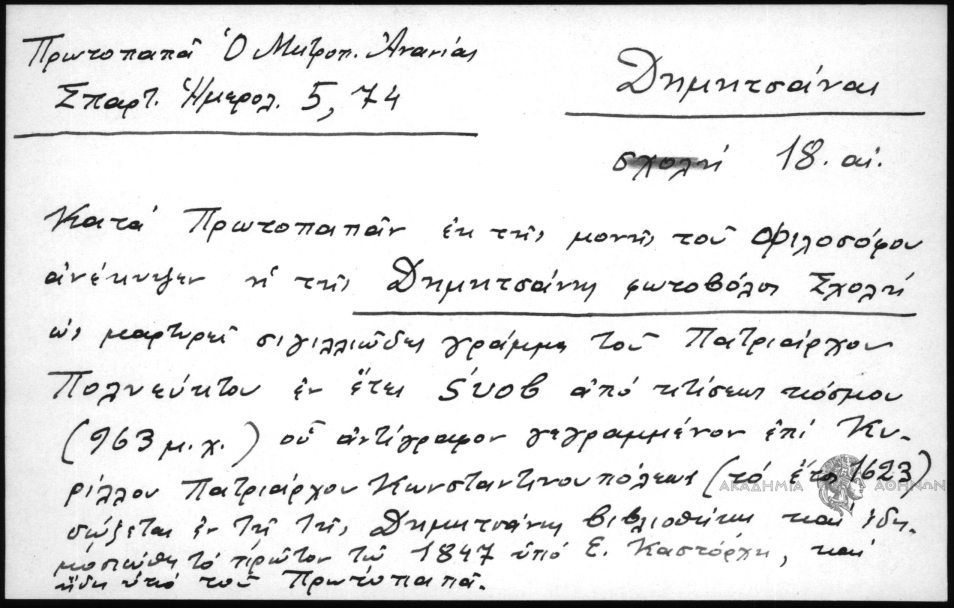 Πρωτοπαπᾶ Ὁ Μητροπ. Ἀνανίας
Σπαρτ. Ἡμερολ. 5, 74
Δημητσάνας
σχολή 18. αἰ.
Κατά Πρωτοπαπᾶν ἐκ τῆς μονῆς τοῦ Φιλοσόφου
ἀνέκυψεν ἡ τῆς Δημητσάνης φωτοβόλος Σχολή
ὡς μαρτυρεῖ σιγιλλιῶδες γράμμα τοῦ Πατριάρχου
Πολυεύκτου ἐν ἔτει ϚΥΟΒ ἀπό κτίσεως κόσμου
(963 μ.χ.) οὗ ἀντίγραφον γεγραμμένον ἐπί Κυ-
ρίλλου Πατριάρχου Κωνσταντινουπόλεως (τό ἔτος 1623)
ΑΚΑΔΗΜΙΑ ΑΘΗΝΩΝ
σώζεται ἐν τῇ τῆς Δημητσάνης βιβλιοθήκῃ καί ἐδη-
μοσιεύθη τό πρῶτον τῷ 1847 ὑπό Ε. Καστόρχη, καί
ἤδη ὑπό τοῦ Πρωτοπαπᾶ.